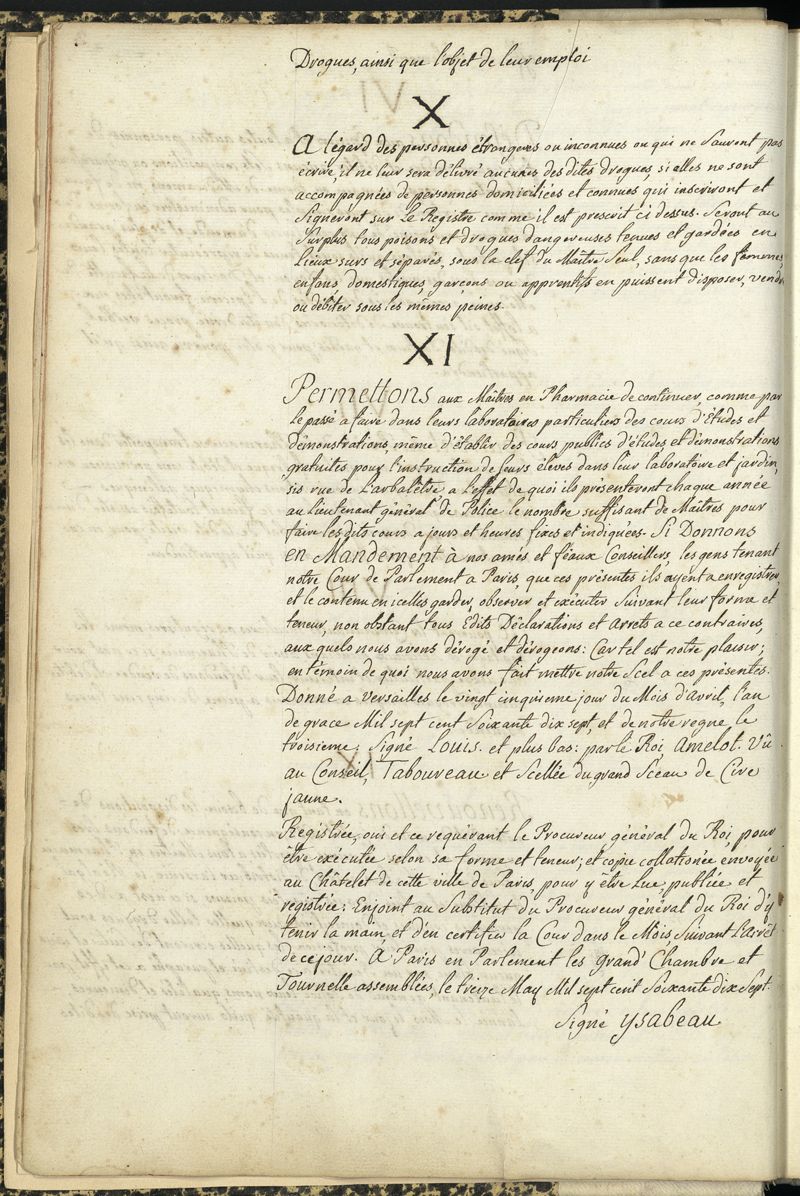 Drogues, ainsi que l'objet de leur emploi
X
A légard des personnes étrangeres ou inconnues ou qui ne Sauront pas
écrire, il ne leur sera délivré aucunes des dites drogues, si elles ne sont
accompagnées de personnes domiciliées et connues qui inscriront et
Signeront sur le Registre comme il est prescrit ci dessus. Seront au
Surplus tous poisons et drogues dangereuses tenues et gardées en
Lieux surs et séparés, sous la clef du Maître Seul, sans que les femmes
enfans, domestiques, garcons ou apprentifs en puissent disposer, vendre
ou débiter sous les mêmes peines.
XI
Permettons aux Maîtres en Pharmacie de continuer, comme par
le passé a faire dans leurs laboratoires particuliers des cours d'Etudes et
démonstrations, même d'établir des cours publics d'études et démonstrations
gratuites pour l'instruction de leurs élèves dans leur laboratoire et jardin,
sis rue de L'arbalêtre, a L'effet de quoi ils présenteront chaque année
au Lieutenant général de Police le nombre suffisant de Maîtres pour
faire les dits cours a jours et heures fixes et indiquées. Si Donnons
en Mandement à nos amés et féaux Conseillers, les gens tenant
notre Cour de Parlement a Paris, que ces présentes ils ayent a enregistrer,
et le contenu en icelles garder, observer et exécuter Suivant leur forme et
teneur, non obstant tous Edits Déclarations et Arrets a ce contraires,
aux quels nous avons dérogé et dérogeons: Car tel est notre plaisir;
en témoin de quoi nous avons fait mettre notre Scel a ces présentes.
Donné a Versailles le vingt inquieme jour du Mois d'avril, l'an
de grace Mil sept cent Soixante dix sept, et de notre regne le
troisieme. Signé Louis. et plus bas: par le Roi, Amelot. Vû
au Conseil, Taboureau et Scellée du grand Sceau de Cire
jaune.
Registrée, oui et ce requérant le Procureur général du Roi, pour
être exécutée selon sa forme et teneur; et copie collationée envoyée
au Châtelet de cette ville de Paris, pour y être Lue, publiée et
registrée: Enjoint au Substitut du Procureur général du Roi d'y
tenir la main, et d'en certifier la Cour dans le Mois, Suivant L'arrêt
de ce jour. A Paris en Parlement les Grand' Chambre et
Tournelle assemblées, le treize May Mil sept cent Soixante dix Sept.
Signé ysabeau